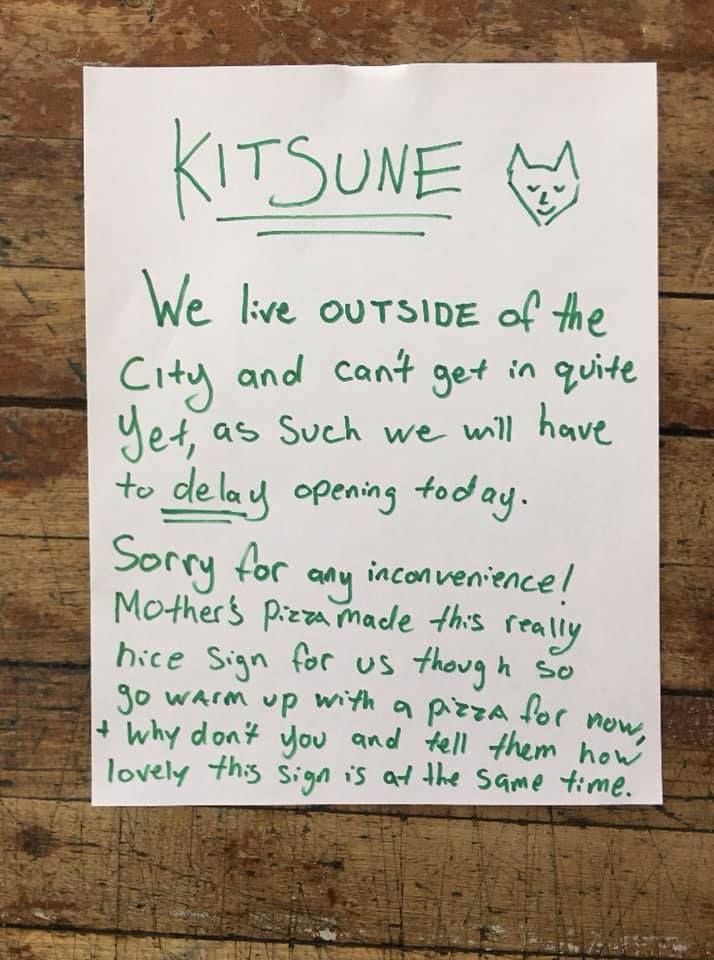 KITSUNE
We live OUTSIDE of the
City and can't get in quite
Yet, as Such we will have
to delay opening today.
Sorry for any inconvenience!
Mother's Pizza made this really
nice Sign for us though so
go warm up with a pizza for now,
+ Why don't you and tell them how
lovely this sign is at the same time.